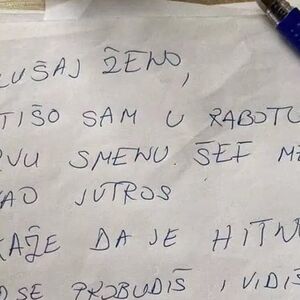 LUŠAJ ŽENO,
TIŠO SAM U RABOTU
RVU SMENU. ŠEF ME
VAO JUTROS
KAŽE DA JE HITNO
DA SE PROBUDIŠ I VIDIŠ